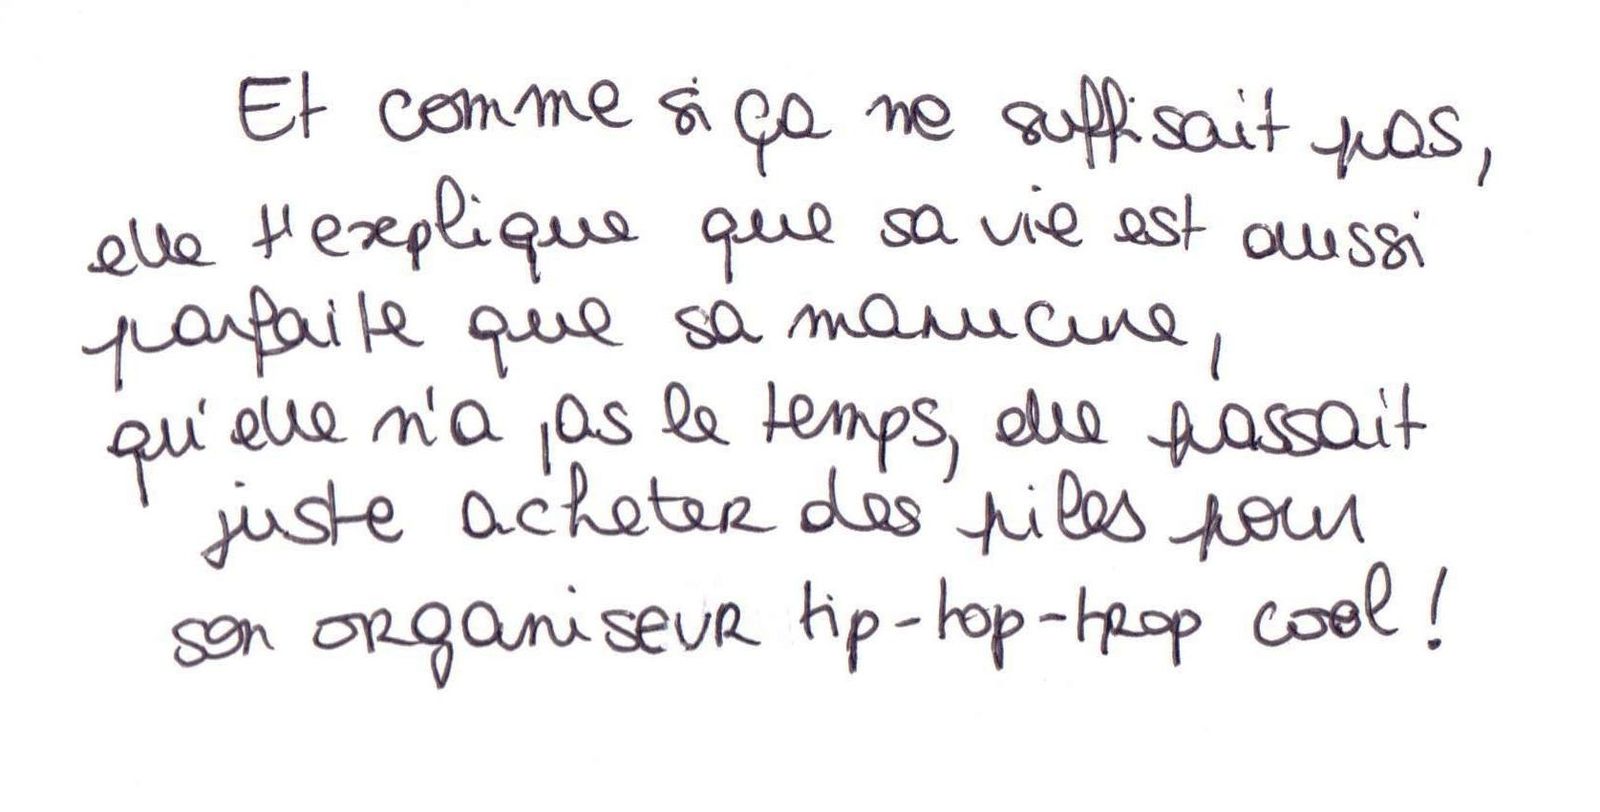 Et comme si ça ne suffisait pas,
elle t'explique que sa vie est aussi
parfaite que sa manucure,
qu'elle n'a pas le temps, elle passait
juste acheter des piles pour
son organiseur tip-top-trop cool !